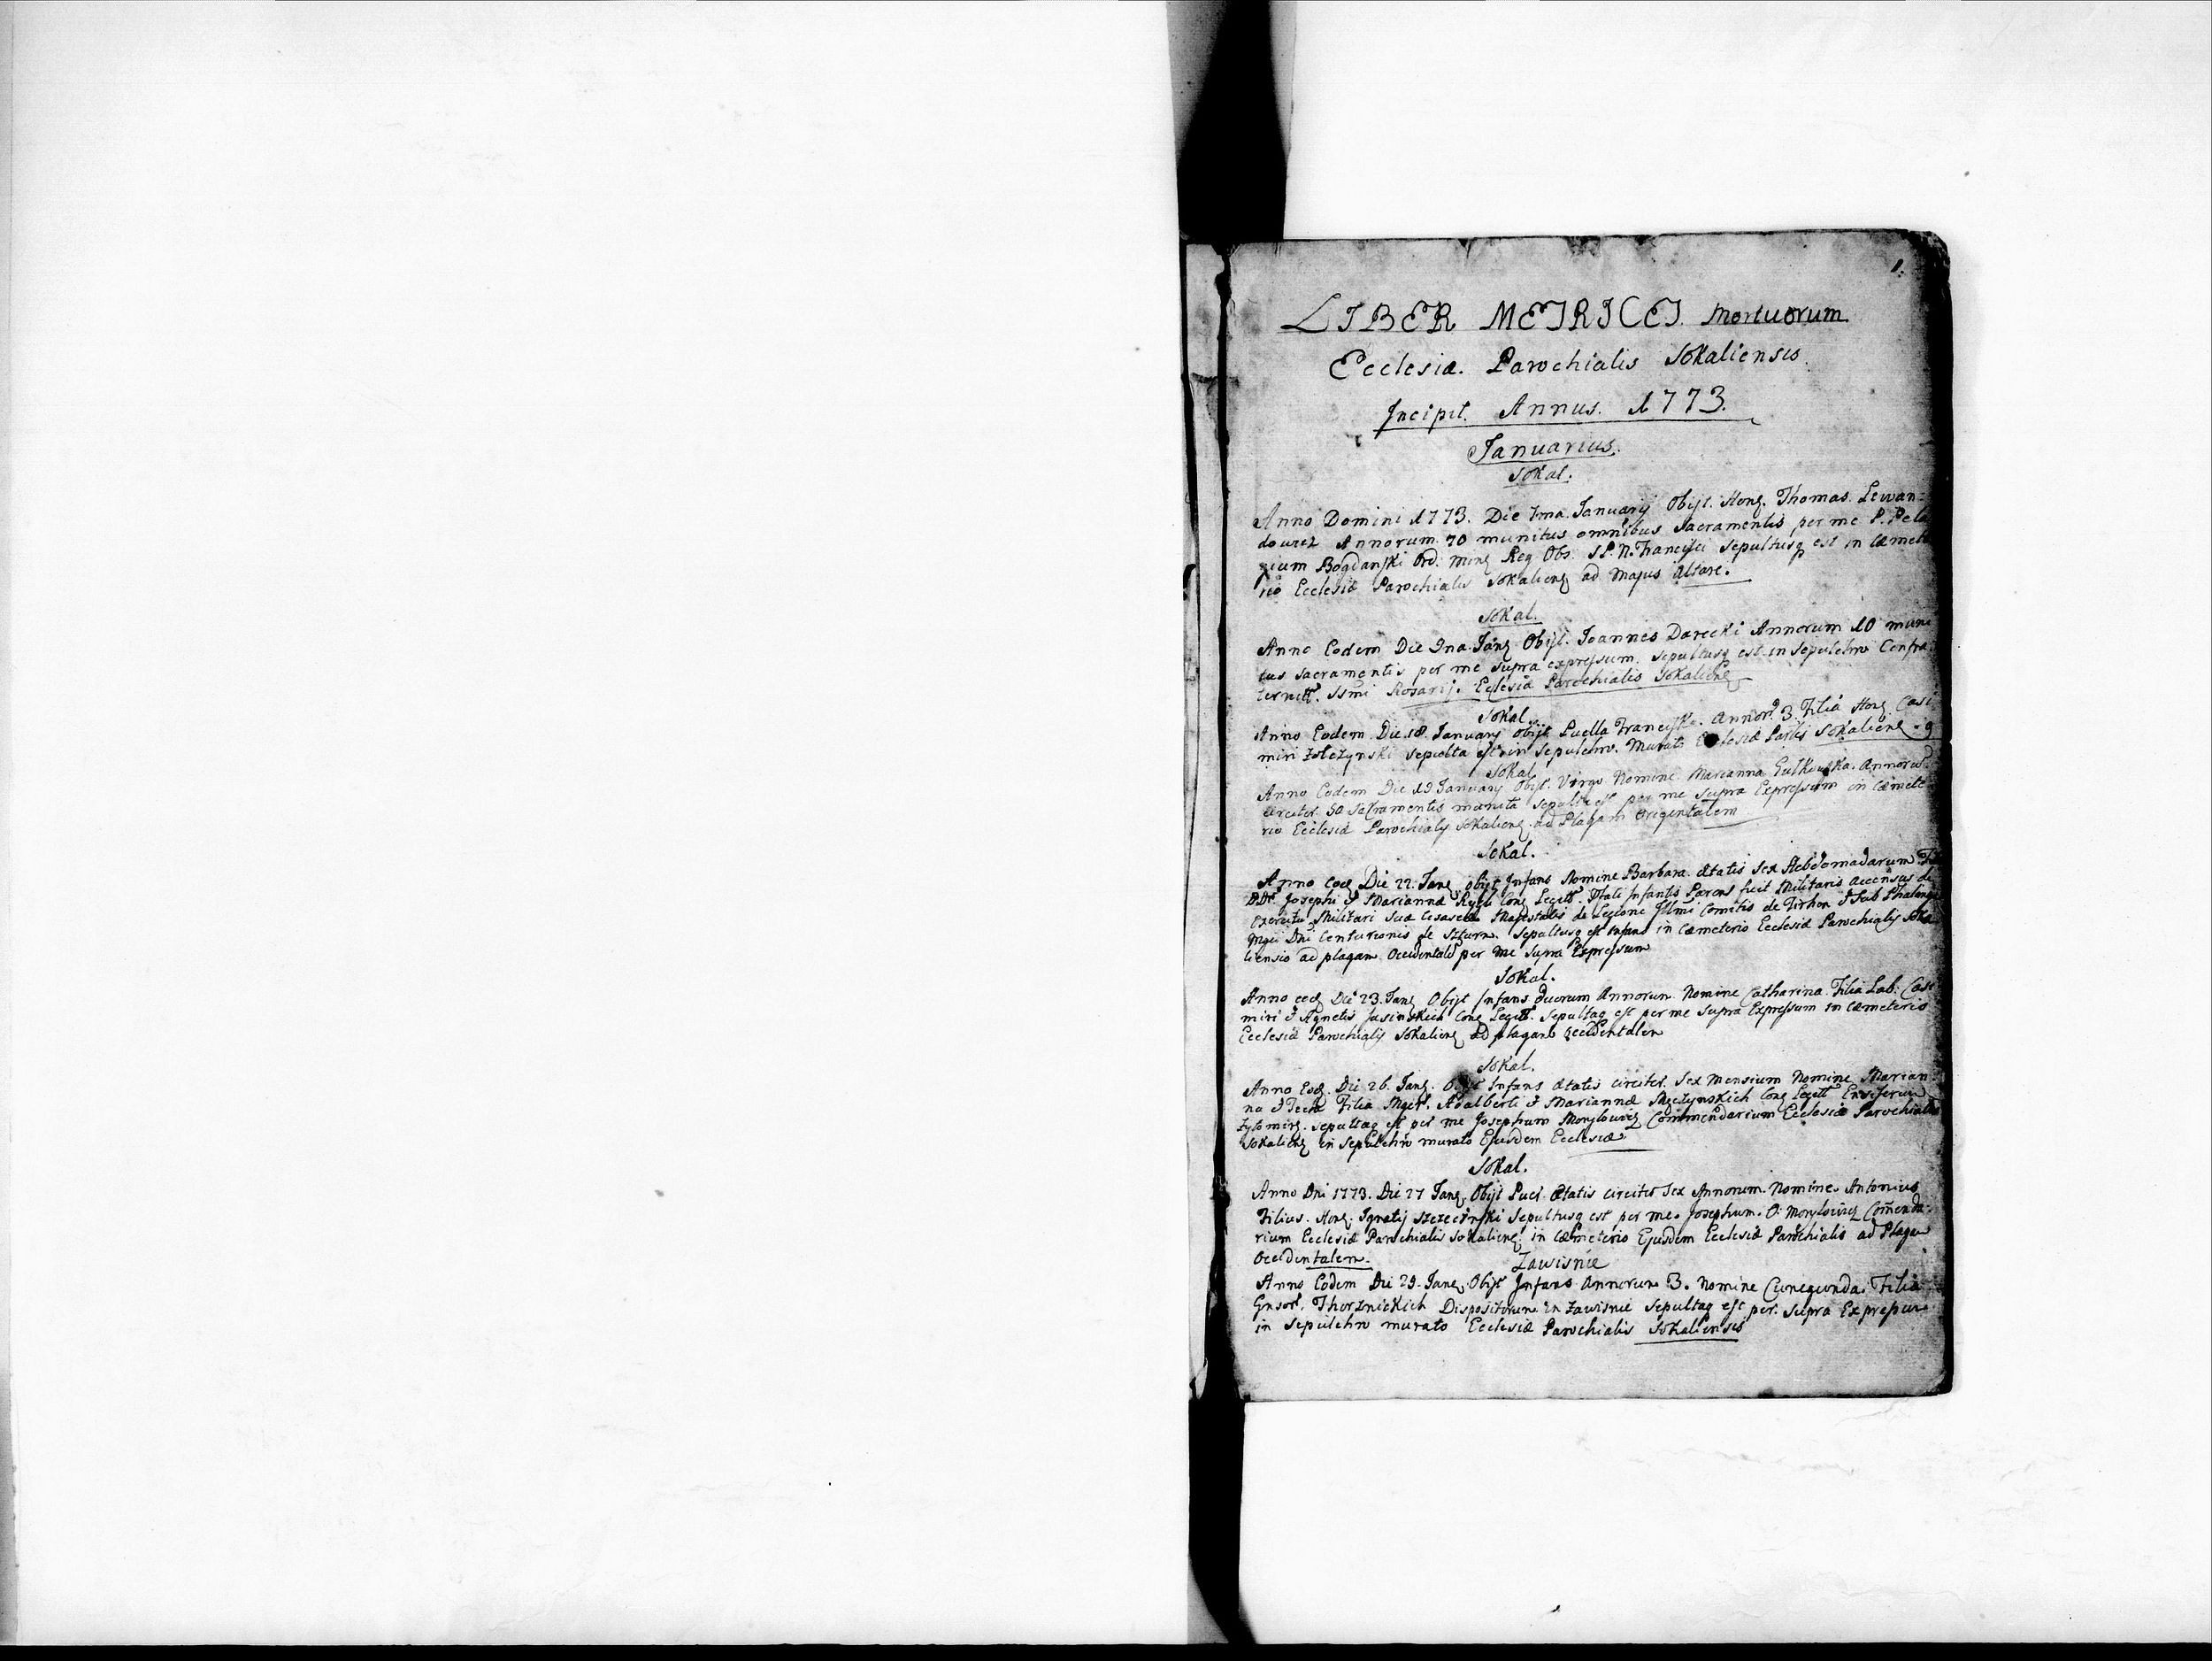 1.
LIBER METRICES. Mortuorum
Ecclesiæ. Parochialis Sokaliensis.
Incipit. Annus. 1773.
Januarius.
Sokal.
Anno Domini 1773. Die 7ma. Januarij Obijt. Hon. Thomas. Lewan-
dowicz Annorum. 70 munitus omnibus Sacramentis per me P. Pela
gium Bogdański Ord. Min. Reg. Obs. S.P.N. Francisci Sepultusq est in Cæmete
rio Ecclesiæ Parochialis Sokalien ad Majus Altare.
Sokal.
Anno Eodem Die Jan. Obijt. Joannes Darecki Annorum 10 muni
tus Sacramentis per me Supra expressum. Sepultusq est in Sepulchro Confra
ternit. SSmi Rosarij. Eclesiæ Parochialis Sokalien
Sokal.
Anno Eodem Die. 18. January obijt Puella Francisca. Annor. 3. Filia Hon. Casi
miri Sepulta est in Sepulchro. Murato Ecclesiæ Parlis Sokalien.
Sokal
Anno Eodem Die 19 January Obijt. Virgo Nomine Marianna Annoru
circiter. 50 Sacramentis munita Sepulta est per me Supra Expressum in Cæmete
rio Ecclesiæ Parochialis Sokalien. ad Plagam Origentalem
Sokal.
Anno eod. Die 22. Jan. obijt Infans Nomine Barbara. Ætatis Sex Hebdomadarum
DD. Josephi & Mariannæ Con. Legitt. Infantis Parens fuit Militaris de
Exercitu Militari Suæ Cesareæ Majestatis de Legione Illmi Comitis de & Sub
Mgci Dni Centurionis de Sepultusq est Infans in Cæmeterio Ecclesiæ Parochialis Soka
liensis ad plagam Occidentalem per me Supra Expressum
Sokal.
Anno eod. Die 23. Jan. Obijt Infans duorum Annorum Nomine Catharina Filia Lab. Casi
miri & Agnetis Jasinskich Con. Legitt. Sepultaq est per me Supra Expressum in Cæmeterio
Ecclesiæ Parochialis Sokalien ad plagam occidentalem
Sokal.
Anno Eod. Die 26. Jan. Obijt Infans ætatis circiter. Sex Mensium Nomine Marian
na & Tecla Filia Adalberti & Mariannæ Con. Legitt
Sepultaq est per me Josephum Commendarium Ecclesiæ Parochialis
Sokalien in Sepulchro murato Ejusdem Ecclesiæ
Sokal.
Anno Dni 1773. Die 27 Jan. Obijt Puer Ætatis circiter Sex Annorum. Nomine. Antonius
Filius. Hon. Ignatij Szczecinski Sepultusq est per me. Josephum. Comenda-
rium Ecclesiæ Parochialis Sokalien in Cæmeterio Ejusdem Ecclesiæ Parochialis ad Plagam
Occidentalem.
Zawisnie
Anno Eodem Die 29. Jan. Obijt Infans Annorum 3. Nomine Cunegunda Filia
Gnsor. Thorznickich Dispositorum in Zawisnie Sepultaq est per. Supra Expressum
in Sepulchro murato Ecclesiæ Parochialis Sokaliensis